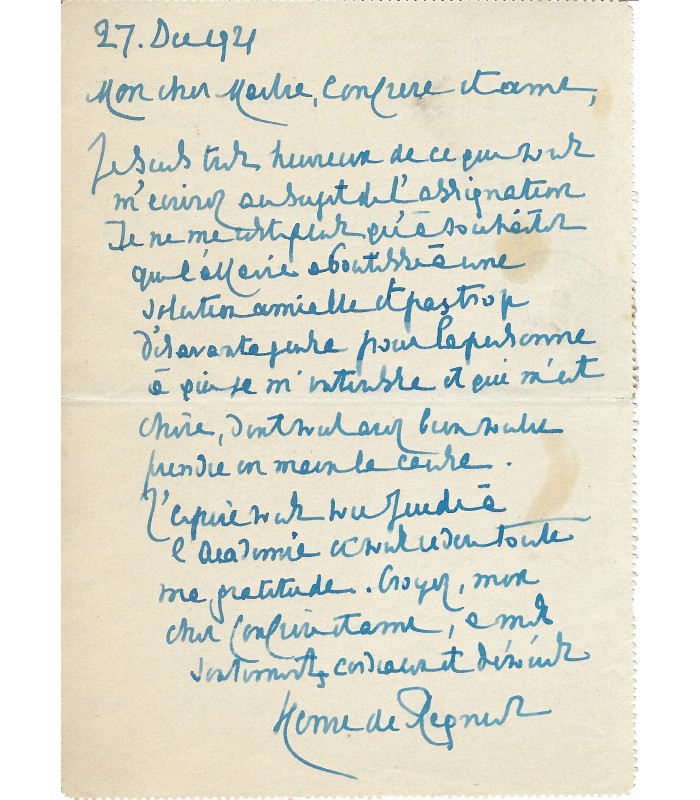 27. Dec 1921
Mon cher Maître, Confrère et ami,
Je suis très heureux de ce que vous
m'écrivez au sujet de l'assignation
Je ne me reste plus qu'à souhaiter
que l'affaire aboutisse à une
solution amiable et pas trop
désavantageuse pour la personne
à qui je m'intéresse et qui m'est
chère, dont vous avez bien voulu
prendre en main la cause.
J'espère vous voir jeudi à
l'Académie et vous redire toute
ma gratitude. Croyez, mon
cher Confrère et ami, à mes
sentiments cordiaux et dévoués
Henri de Régnier